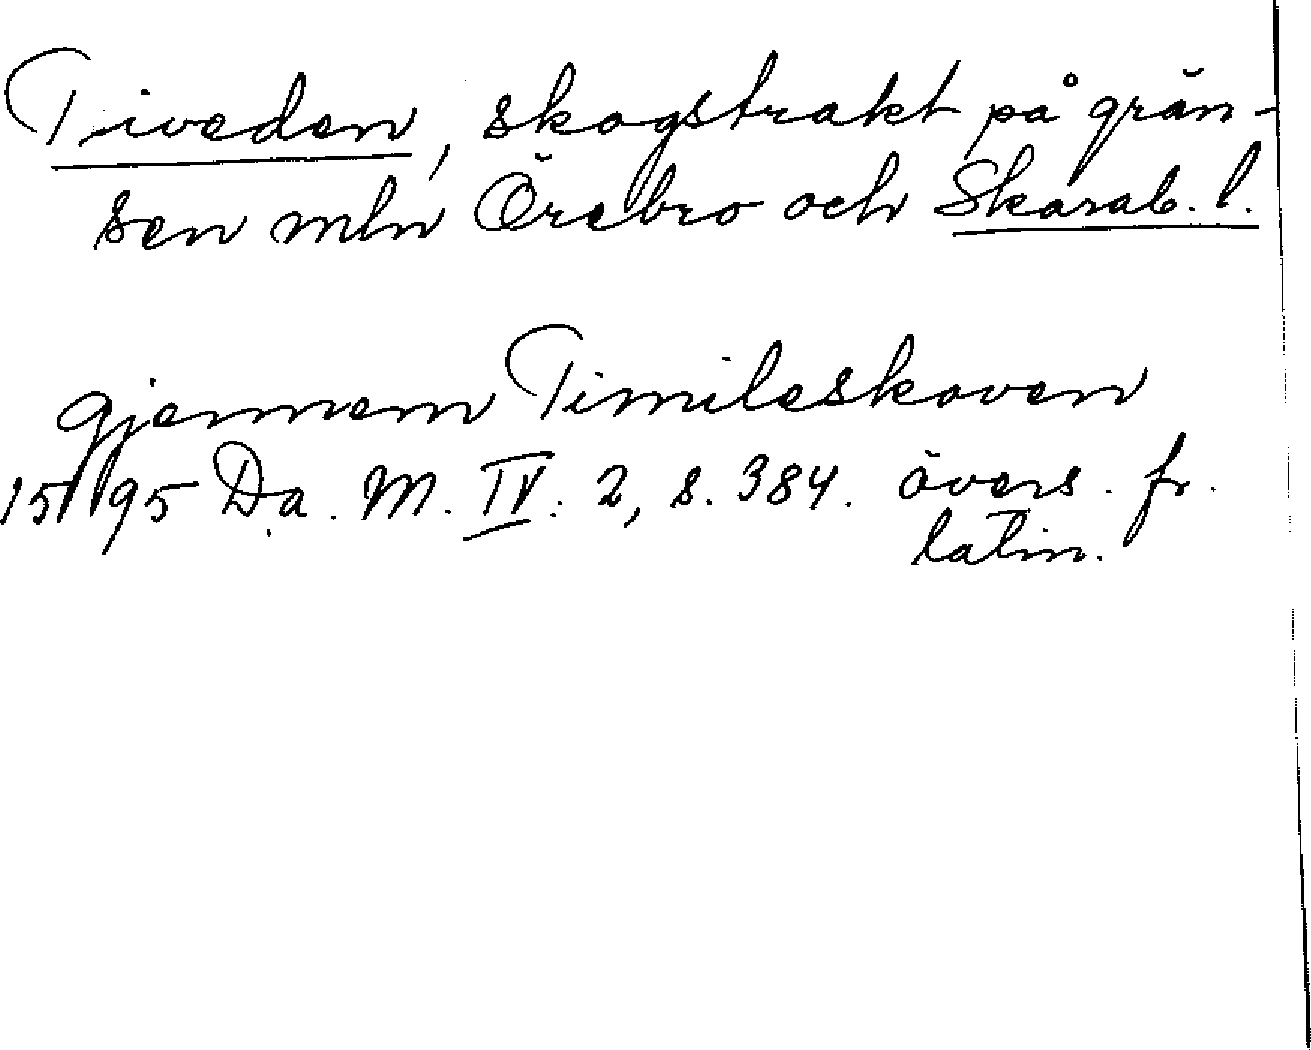 Tiveden, skogstrakt på grän-
sen mln Örebro och Skarab. l.
gjennem Timileskoven
1595 Da. M. IV. 2, s. 384. övers. fr.
latin.